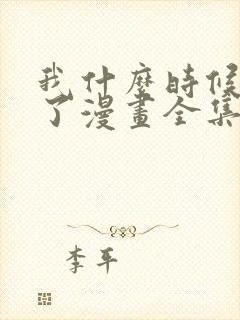 我什麼時候
了漫畫全集
李平